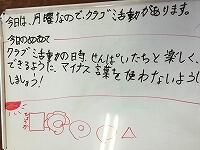 今日は、月曜なので、クラブ活動があります。
今日のめあて
クラブ活動の日時、せんぱいたちと楽しく、
できるように、マイナス言葉を使わないように
しましょう!